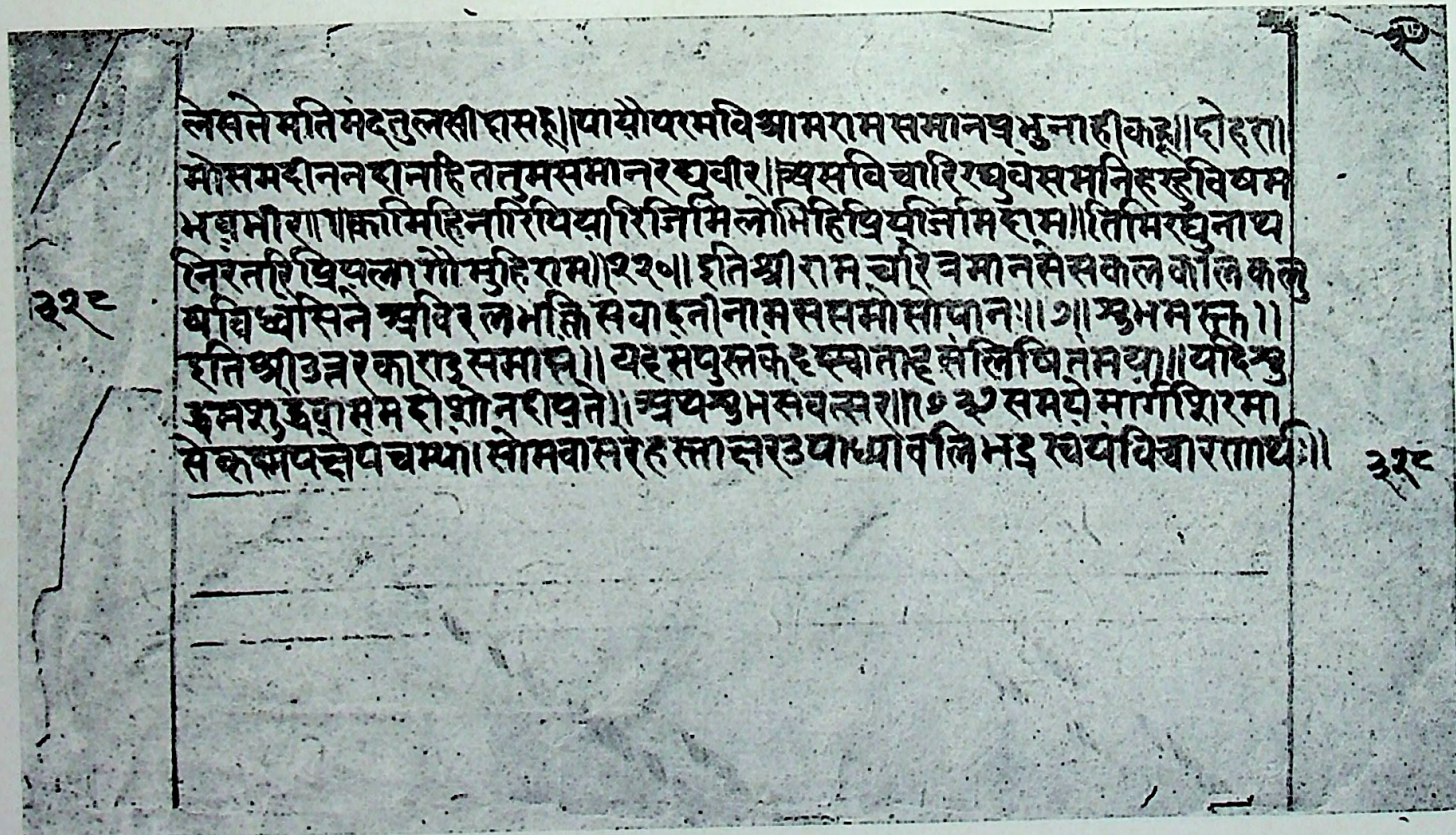 लेसतेमतिमंदतुलसीदासहू।।पायौपरमविश्रामरामसमानप्रभुनाहीकहू।।दोहता।
मोसमदीननदीनहिततुमसमानरघुवीर।।असविचारिरघुवंसमनिहरहुविषम
भवभीर।।१।।कामिहिनारिपियारिजिमिलोभिहिप्रियजिमिदाम।।तिमिरघुनाथ
निरंतरिप्रियलागौमुहिराम।।२३०।।इतिश्रीरामचरित्रमानसेसकलकलिकलु
षविध्वंसिनेअविरलभक्तिसंवादनीनामसप्तमोसोपानः।।७।।शुभमस्तु।।
इतिश्रीउत्तरकाण्डसमाप्त।।यदृसंपुस्तकंदृष्ट्वातादृसंलिषितंमया।।यदिशु
द्धमशुद्धंवामम दीयते।।अथशुभसंवत्सर।।१७३७समयंमार्गशिरमा
सेकृष्णपक्षेपंचम्या।सोमवासरेहस्ताक्षरउपाध्यावलिभद्रस्वयंविचारणार्थः।।
३२८
३२८